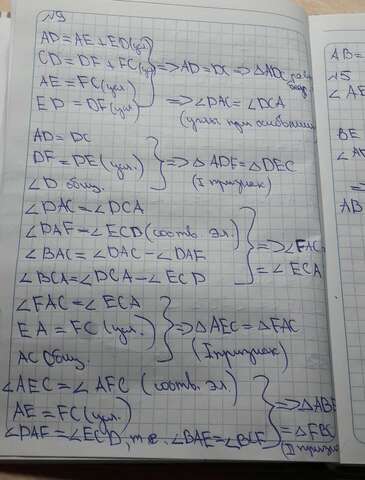 №9
AD = AE + ED (усл.)
CD = DF + FC (усл.)
AE = FC (усл.)
ED = DF (усл.)
=> AD = DC => △ADC
=> ∠DAC = ∠DCA
(углы при основании
AD = DC
DF = DE (усл.)
∠D общ.
=> △ADF = △DEC
(I признак)
∠DAC = ∠DCA
∠DAF = ∠ECD (соотв. эл.)
∠BAC = ∠DAC − ∠DAF
∠BCA = ∠DCA − ∠ECD
=> ∠FAC
= ∠ECA
∠FAC = ∠ECA
EA = FC (усл.)
AC общ.
=> △AEC = △FAC
(I признак)
∠AEC = ∠AFC (соотв. эл)
AE = FC (усл.)
∠DAF = ∠ECD, т.е. ∠BAE = ∠BCF
=> △ABE
= △FBC
(II призн
AB =
№5
∠AE
BE
∠AF
=>
AB